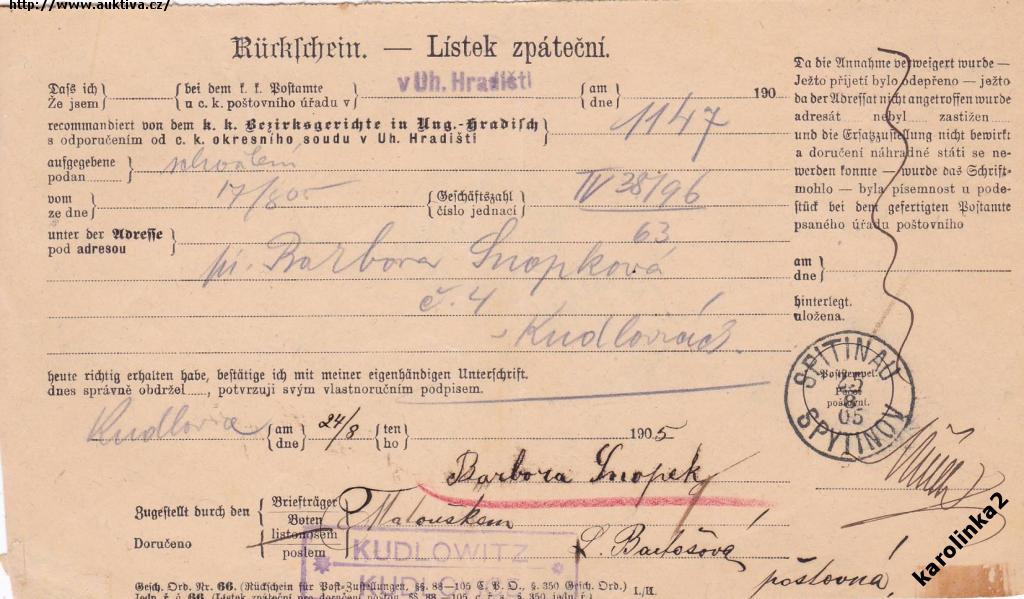 http://www.auktiva.cz/
Rückschein. — Lístek zpáteční.
Daſs ich bei dem k. k. Postamte v Uh. Hradišti am 190
Že jsem u c. k. poštovního úřadu v dne
recommandiert von dem k. k. Bezirksgerichte in Ung.-Hradisch 1147
s odporučením od c. k. okresního soudu v Uh. Hradišti
aufgegebene
podan
vom 17/8 05 Geschäftszahl IV 38/96
ze dne číslo jednací 63
unter der Adresse
pod adresou
pí. Barbora Snopková
č. 4
Kudlovicích
heute richtig erhalten habe, bestätige ich mit meiner eigenhändigen Unterschrift.
dnes správně obdržel....., potvrzuji svým vlastnoručním podpisem.
Kudlovice am 24/8 ten 1905
dne ho
Barbora Snopek
Zugestellt durch den Briefträger
Boten
Doručeno listonosem
poslem
Matouškem
L. Bartošova
poštovná
KUDLOWITZ
Gesch. Ord. Nr. 66. (Rückschein für Post-Zustellungen. §§. 88—105 C. P. O., §. 350 Gesch. Ord.)
Jedn. ř. č. 66 I./II.
Da die Annahme verweigert wurde —
Ježto přijetí bylo odepřeno — ježto
da der Adressat nicht angetroffen wurde
adresát nebyl zastižen
und die Ersatzzustellung nicht bewirkt
a doručení náhradné státi se ne-
werden konnte — wurde das Schrift-
mohlo — byla písemnost u pode-
stück bei dem gefertigten Postamte
psaného úřadu poštovního
am
dne
hinterlegt.
uložena.
SPITINAU
Poststempel.
25
8
05
poštovní.
SPYTINOV
karolinka2